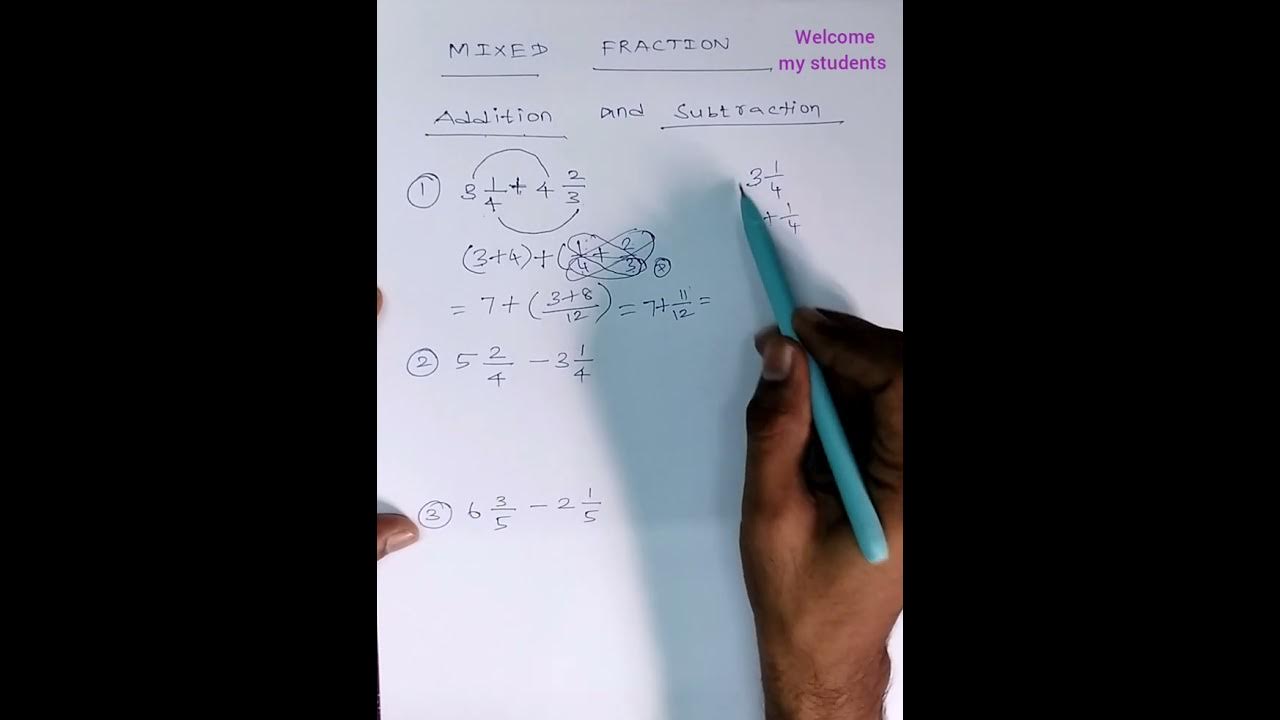 MIXED FRACTION
Welcome
my students
Addition and Subtraction
① 3 1/4 + 4 2/3
3 1/4
+ 1/4
(3+4)+(1/4 + 2/3)
= 7+(3+8/12) = 7+11/12 =
② 5 2/4 - 3 1/4
③ 6 3/5 - 2 1/5